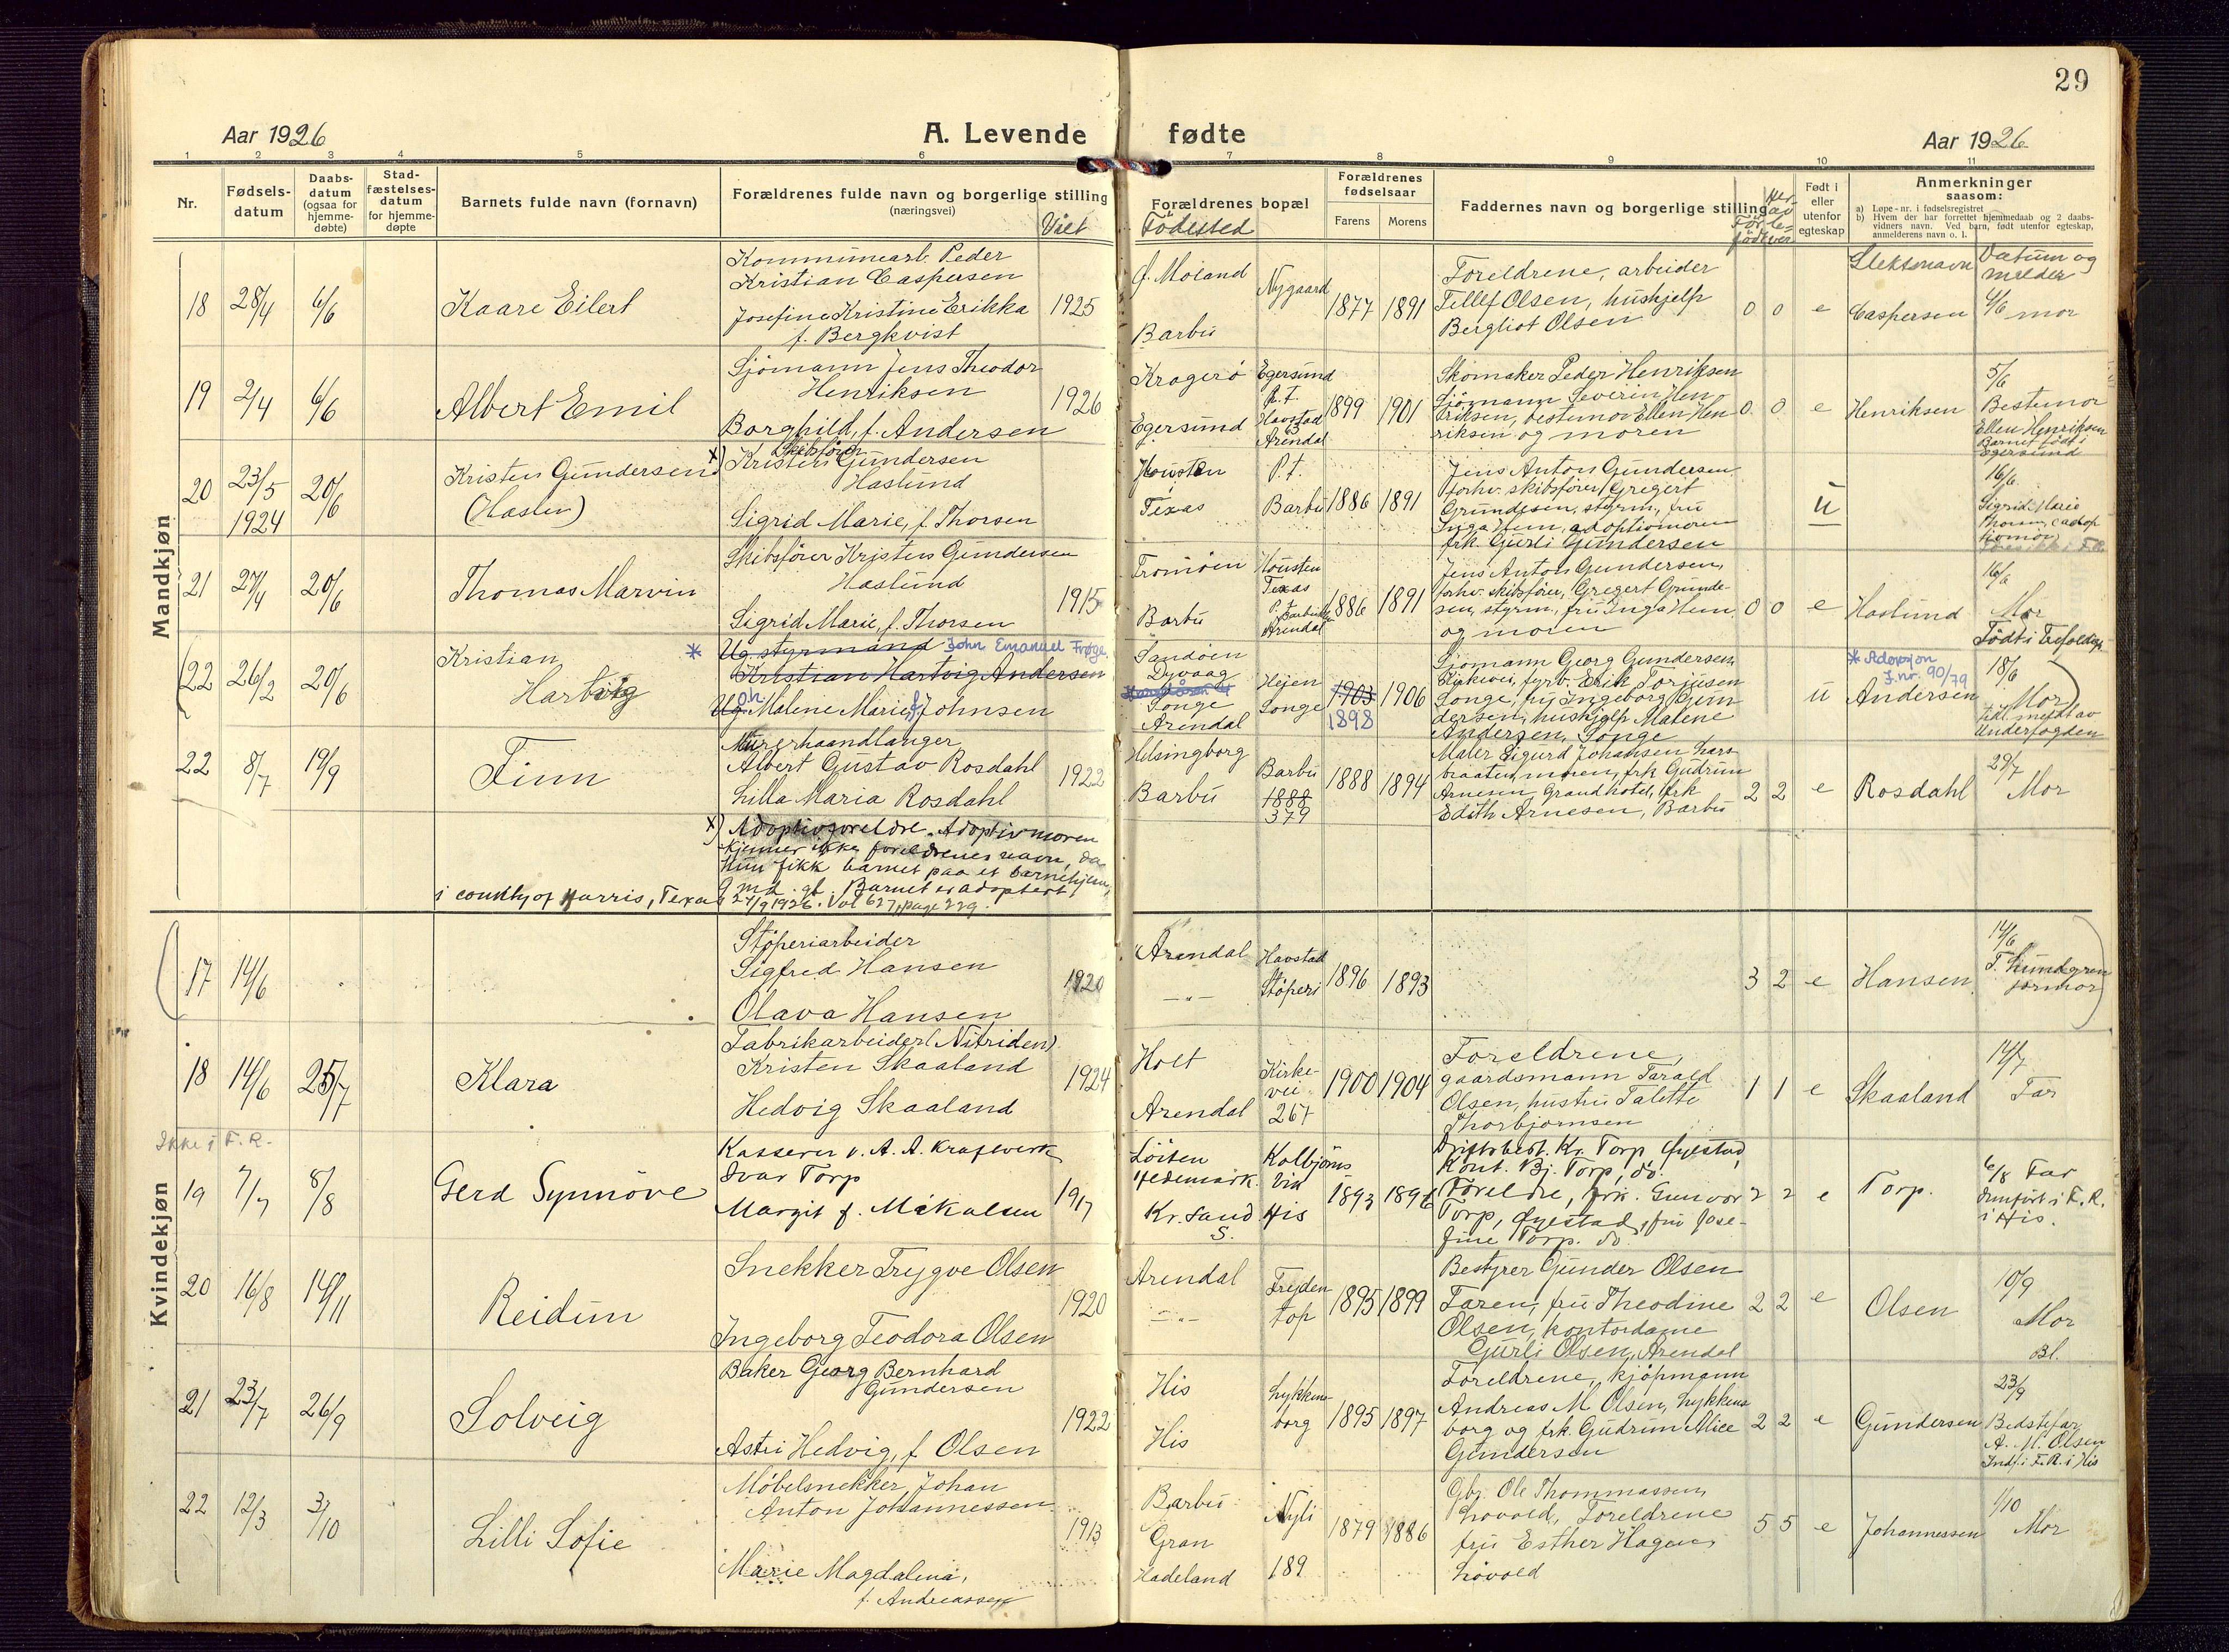 29
Aar 1926
A. Levende fødte
Aar 1926
1 2 3 4 5 6 7 8 9 10 11
Nr.
Fødsels-
datum
Daabs-
datum
(ogsaa for
hjemme-
døbte)
Stad-
fæstelses-
datum
for hjemme-
døpte
Barnets fulde navn (fornavn)
Forældrenes fulde navn og borgerlige stilling
(næringsvei)
Viet
Forældrenes bopæl
Födested
Forældrenes
fødselsaar
Farens Morens
Faddernes navn og borgerlige stilling
Født i
eller
utenfor
egteskap
Anmerkninger
saasom:
a) Løpe-nr. i fødselsregistret
b) Hvem der har forrettet hjemmedaab og 2 daabs-
vidners navn. Ved barn, født utenfor egteskap,
anmelderens navn o. l.
Slektsnavn
Datum og
melder
Mandkjøn
18 28/4 6/6
Kaare Eilert
Kommunearb. Peder
Kristian Caspersen
Josefine Kristine Erikka
f. Bergkvist
1925
Ø. Moland
Barbu
Nygaard
1877 1891
Foreldrene, arbeider
Tellef Olsen, hushjelp
Bergliot Olsen
0 0 e
Caspersen
4/6 mor
19 2/4 6/6
Albert Emil
Sjömann Jens Theodor
Henriksen
Borghild, f. Andersen
1926
Kragerö
Egersund
Egersund
P.t.
Havstad
Arendal
1899 1901
Skomaker Peder Henriksen
Sjömann Severin Hen-
riksen, bestemor Ellen Hen
riksen og moren
0 0 e
Henriksen
5/6
Bestemor
Ellen Henriksen
Barnet födt i
Egersund
20 23/5
1924
20/6
Kristen Gundersen
(Haslun)
x) Skibsförer
Kristen Gundersen
Haslund
Sigrid Marie, f. Thorsen
Housten
Texas
P.t.
Barbu
1886 1891
Jens Anton Gundersen
forhv. skibsförer, Gregert
Gundesen, styrm., fru
Inga Hem, adoptivmoren
frk. Gurli Gundersen
u
16/6.
Sigrid Marie
21 27/4 20/6
Thomas Marvin
Skibsförer Kristen Gundersen
Haslund
Sigrid Marie, f. Thorsen
1915
Tromöen
Barbu
Housten
Texas
P.t.
Arendal
1886 1891
Jens Anton Gundersen,
forhv. skibsförer, Gregert Gunde-
sen, styrm., fru Inga Hem
og moren
0 0 e
Haslund
16/6
Mor
(22 26/2 20/6
Kristian
Hartvig
* Ug styrmand John Emanuel Frøge
Kristian Hartvig Andersen
Ug. Malene Marie, f. Johnsen
Sandöen
Dyvaag
Songe
Arendal
Hejen
Songe
1903
1898
1906
Sjömann Georg Gundersen
Erik Torjusen
Songe, fru Ingeborg Gun
dersen, hushjelp Malene
Andersen, Songe
u
* Adopsjon
J.nr. 90/79
Andersen
18/6
Mor)
Underfogden
22 8/7 19/9
Finn
Murerhaandlanger
Albert Gustav Rosdahl
Lilla Maria Rosdahl
1922
Helsingborg
Barbu
Barbu
1888
379
1888 1894
Maler Sigurd Johansen Lars
braaten, moren, frk Gudrun
Arnesen, Grand hotel, frk
Edith Arnesen, Barbu
2 2 e
Rosdahl
29/7
Mor
x) Adoptivforeldre. Adoptivmoren
kjenner ikke foreldrenes navn, da
hun fikk barnet paa et barnehjem,
9 md. gl. Barnet er adoptert
i county of Harris, Texas 24/9 1926. Vol 627, page 229.
Kvindekjøn
(17 14/6
Støperiarbeider
Sigfred Hansen
Olava Hansen
1920
Arendal
— " —
Havstad
Støperi
1896 1893
3 2 e
Hansen
14/6
T. Lundgren
jormor)
18 14/6 25/7
Klara
Fabrikarbeider (Nitriden)
Kristen Skaaland
Hedvig Skaaland
1924
Holt
Arendal
Kirke-
vei
267
1900 1904
Foreldrene,
gaardsmann Tarald
Olsen, hustru Talette
Thorbjornsen
1 1 e
Skaaland
14/7
Far
Ikke i F. R.
19 7/7 8/8
Gerd Synnöve
Kasserer v. A. A. Kraftverk
Ivar Torp
Margit f. Mikalsen
1917
Löiten
Hedemark.
Kr. sand
S.
Kolbjörns
vik
His
1893 1896
Driftsbest. Kr. Torp Öyestad,
Kont. Bj. Torp, do.
Foreldre, frk. Gunvor
Torp, Öyestad, fru Jose-
fine Torp. do.
2 2 e
Torp.
6/8 Far
Innfört i F. R.
i His.
20 16/8 14/11
Reidun
Snekker Trygve Olsen
Ingeborg Teodora Olsen
1920
Arendal
— " —
Frejden
top
1895 1899
Bestyrer Gunder Olsen
Faren, fru Theodine
Olsen, kontordame
Gurli Olsen, Arendal
2 2 e
Olsen
10/9
Mor
Bl.
21 23/7 26/9
Solveig
Baker Georg Bernhard
Gundersen
Astri Hedvig, f Olsen
1922
His
His
Lykkens
borg
1895 1897
Foreldrene, kjöpmann
Andreas M Olsen, Lykkens
borg og frk. Gudrun Alice
Gundersen
2 2 e
Gundersen
23/9
Bedstefar
A. M. Olsen
Indf. i F. R. i His
22 12/3 3/10
Lilli Sofie
Möbelsnekker Johan
Anton Johannessen
Marie Magdalena,
f. Andreassen
1913
Barbu
Gran
Hadeland
Nyli
189
1879 1886
Gbr. Ole Thommassen,
Lövold, Foreldrene
fru Esther Hagane,
Lövold
5 5 e
Johannessen
1/10
Mor